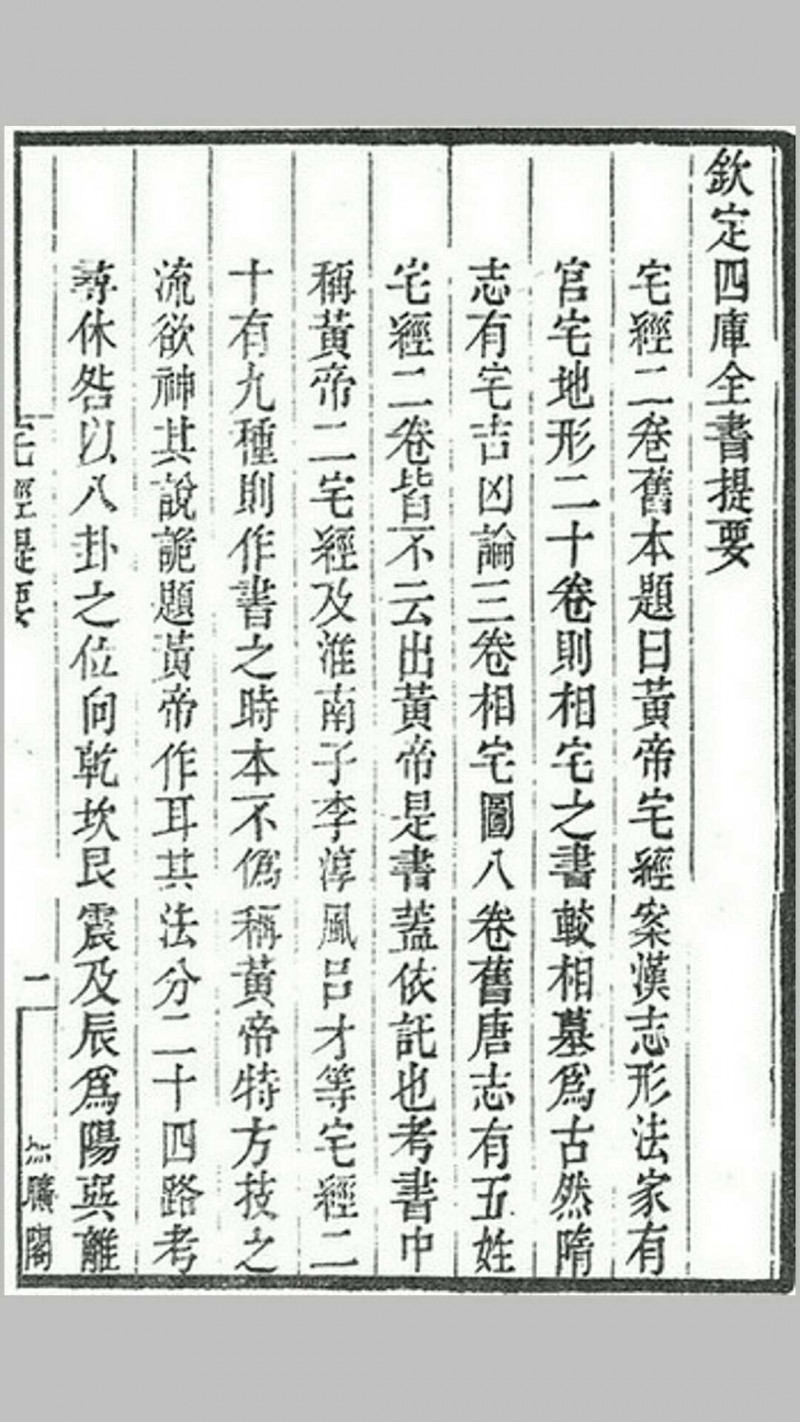 欽定四庫全書提要
宅經二卷舊本題曰黃帝宅經案漢志形法家有
宮宅地形二十卷則相宅之書較相墓爲古然隋
志有宅吉凶論三卷相宅圖八卷舊唐志有五姓
宅經二卷皆不云出黃帝是書蓋依託也考書中
稱黃帝二宅經及淮南子李淳風呂才等宅經二
十有九種則作書之時本不僞稱黃帝特方技之
流欲神其說詭題黃帝作耳其法分二十四路考
尋休咎以八卦之位向乾坎艮震及辰爲陽巽離
宅經提要
二